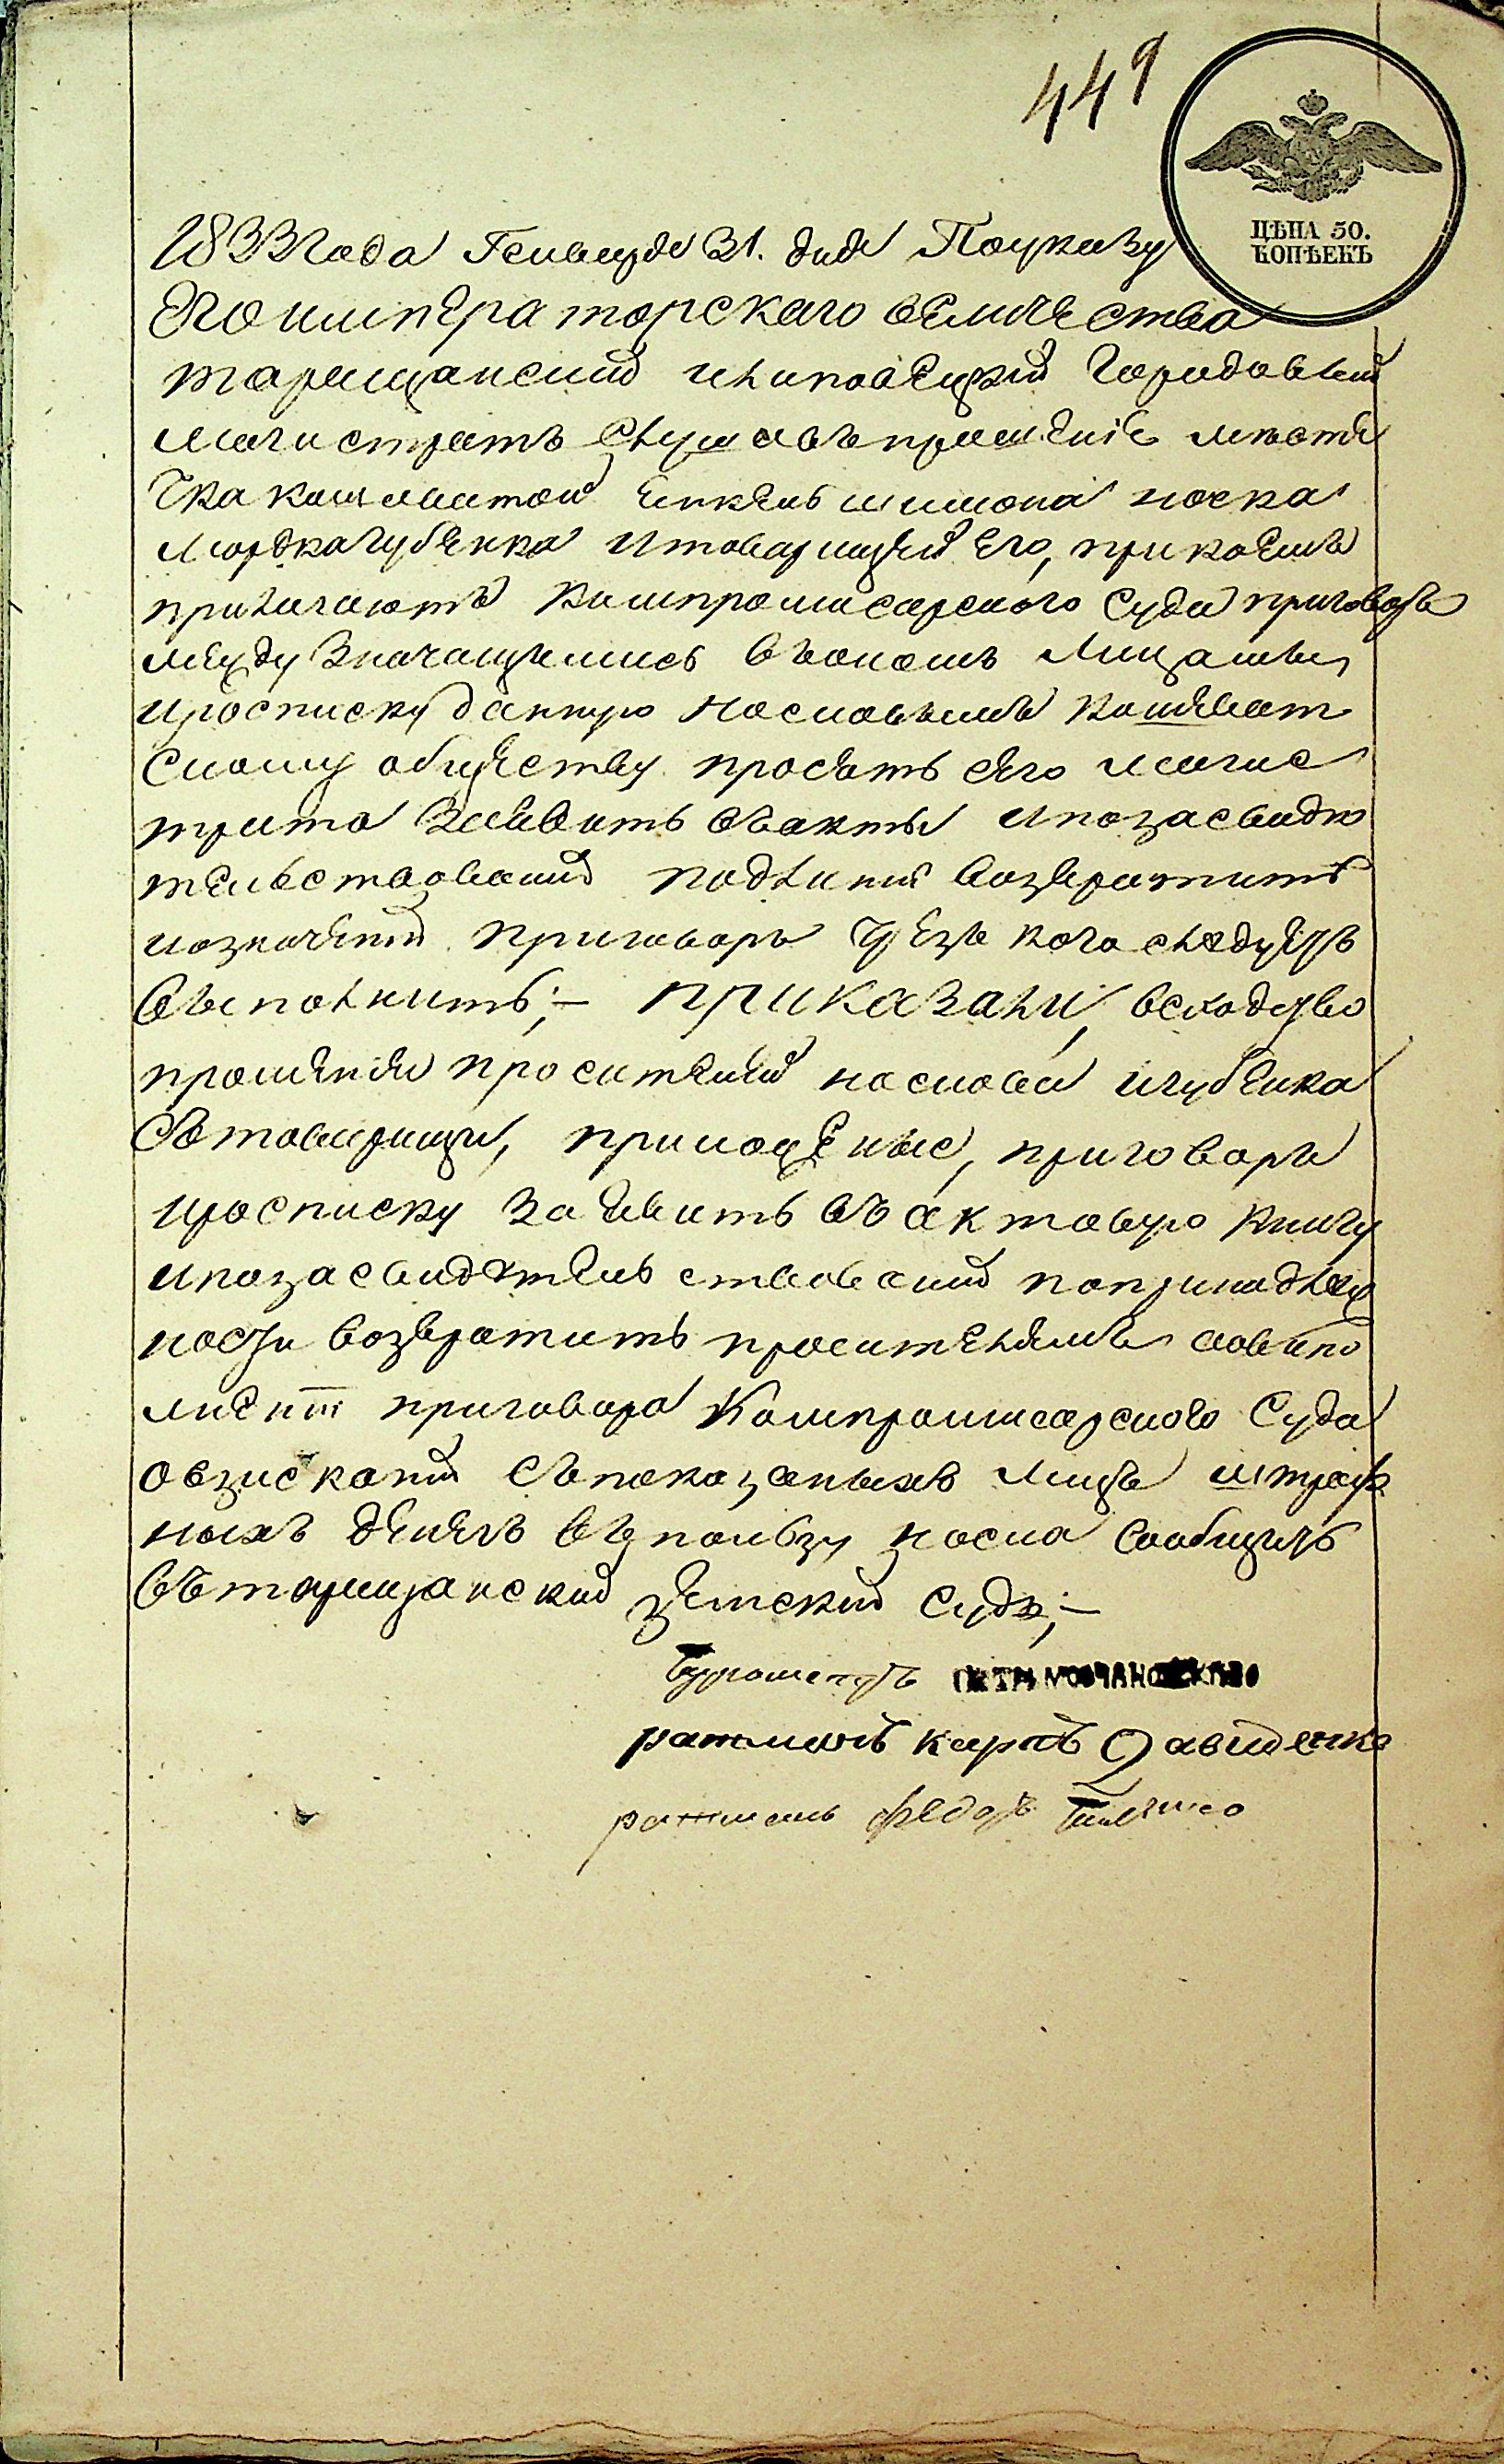 449
ЦѢНА 50.
КОПѢЕКЪ
1833 года Генваря 31. дня По указу
Его императорскаго величества
таращанский и липовецкий Городовый
магистратъ Слушавъ прошеніе мѣсте
чка кошеватой Шимона носка
мордка губенка и товарищей Его, при коемъ
прилагаютъ Компромисарского Суда приговоръ
между Значащимись въ ономъ Лицамы,
и росписку данную носковымъ Кошеват
Скому обществу просятъ сего магис
трата Заявить въ акты и по засвидѣ
тельствовании подлинни возвратить
и означений приговоръ чрезъ кого слѣдуетъ
выполнить;— приказали, вслодство
прошения просителей носкова и губенка
Съ товарищи, приложение, приговоръ
и росписку Заявить въ актовую книгу
и по засвидѣтельствовании по принадлеж
ности возвратить просителямъ а о выпо
лнении приговора Компромисарского Суда
о взискании Съ показаныхъ лицъ штраф
ныхъ денегъ въ ползу носка Сообщить
въ таращанский земский Судъ;—
Бурмистръ
ратманъ карпъ Давиденко
ратманъ федоръ